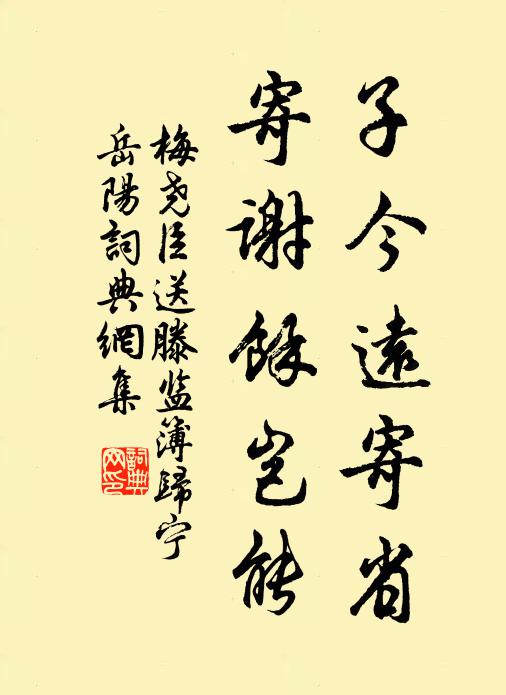 子今遠寄省
寄謝餘豈能
梅尧臣送滕监簿歸宁
岳陽詞典網集
詞典网印